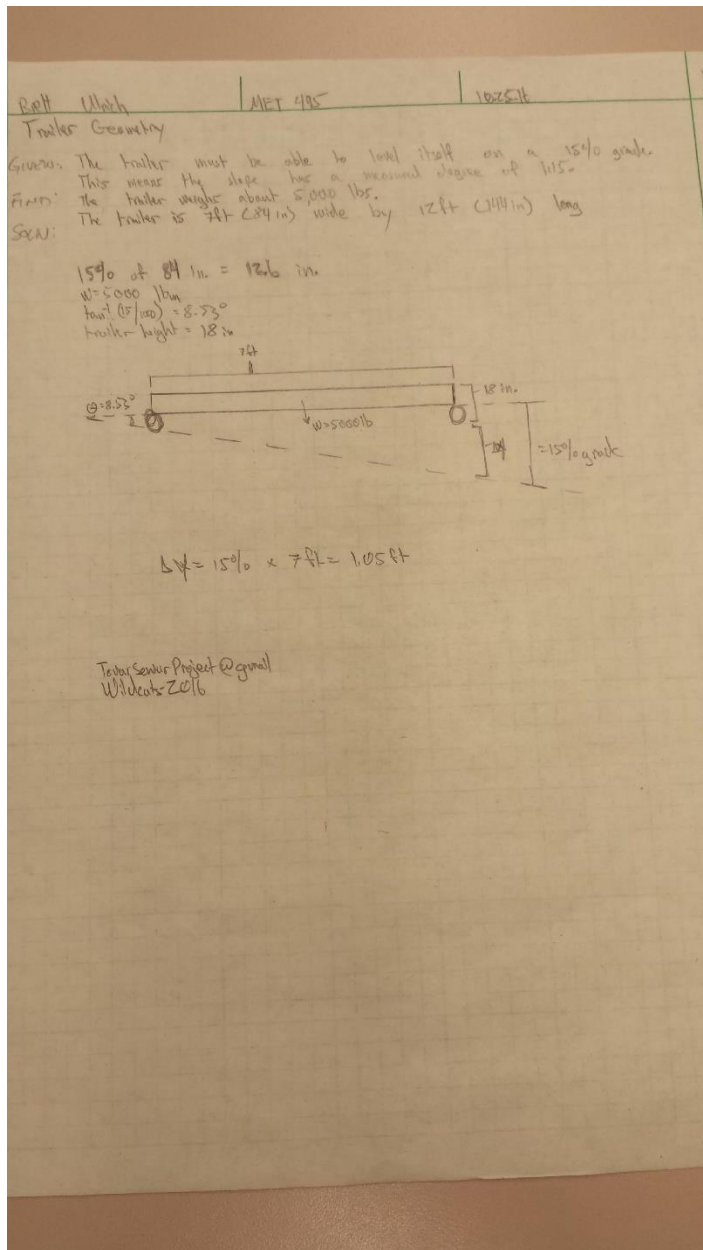 Brett Ulrich MET 495 10-25-16
Trailer Geometry
Given: The trailer must be able to level itself on a 15% grade.
This means the slope has a measured degree of 1:15.
Find: The trailer weighs about 5,000 lbs.
Soln: The trailer is 7ft (84 in) wide by 12ft (144 in) long
15% of 84 in. = 12.6 in.
W=5000 lbm
tan⁻¹ (15/100) = 8.53°
trailer height = 18 in
7ft
18 in.
θ=8.53°
W=5000lb
=15% grade
= 15% × 7ft = 1.05 ft
Project@gmail
Wildcats-2016